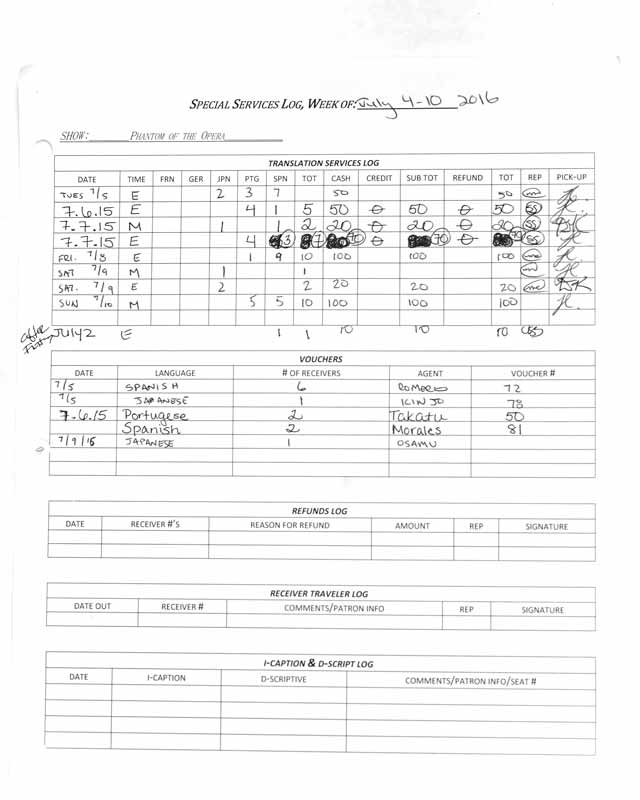 SPECIAL SERVICES LOG, WEEK OF: July 4-10 2016
SHOW: PHANTOM OF THE OPERA
TRANSLATION SERVICES LOG
DATE TIME FRN GER JPN PTG SPN TOT CASH CREDIT SUB TOT REFUND TOT REP PICK-UP
TUES 7/5 E 2 3 7 50 50 mc
7.6.15 E 4 1 5 50 0 50 0 50 SS
7.7.15 M 1 1 2 20 0 20 0 20 SS
7.7.15 E 4 3 7 70 0 70 0 70 SS
FRI. 7/8 E 1 9 10 100 100 100 mc
SAT 7/9 M 1 1 mc
SAT. 7/9 E 2 2 20 20 20 mc
SUN 7/10 M 5 5 10 100 100 100
JULY 2 E 1 1 10 10 10
VOUCHERS
DATE LANGUAGE # OF RECEIVERS AGENT VOUCHER #
7/5 SPANISH 6 ROMERO 72
7/5 JAPANESE 1 KINJO 78
7.6.15 Portugese 2 Takatu 50
Spanish 2 Morales 81
7/9/16 JAPANESE 1 OSAMU
REFUNDS LOG
DATE RECEIVER #'S REASON FOR REFUND AMOUNT REP SIGNATURE
RECEIVER TRAVELER LOG
DATE OUT RECEIVER # COMMENTS/PATRON INFO REP SIGNATURE
I-CAPTION & D-SCRIPT LOG
DATE I-CAPTION D-SCRIPTIVE COMMENTS/PATRON INFO/SEAT #